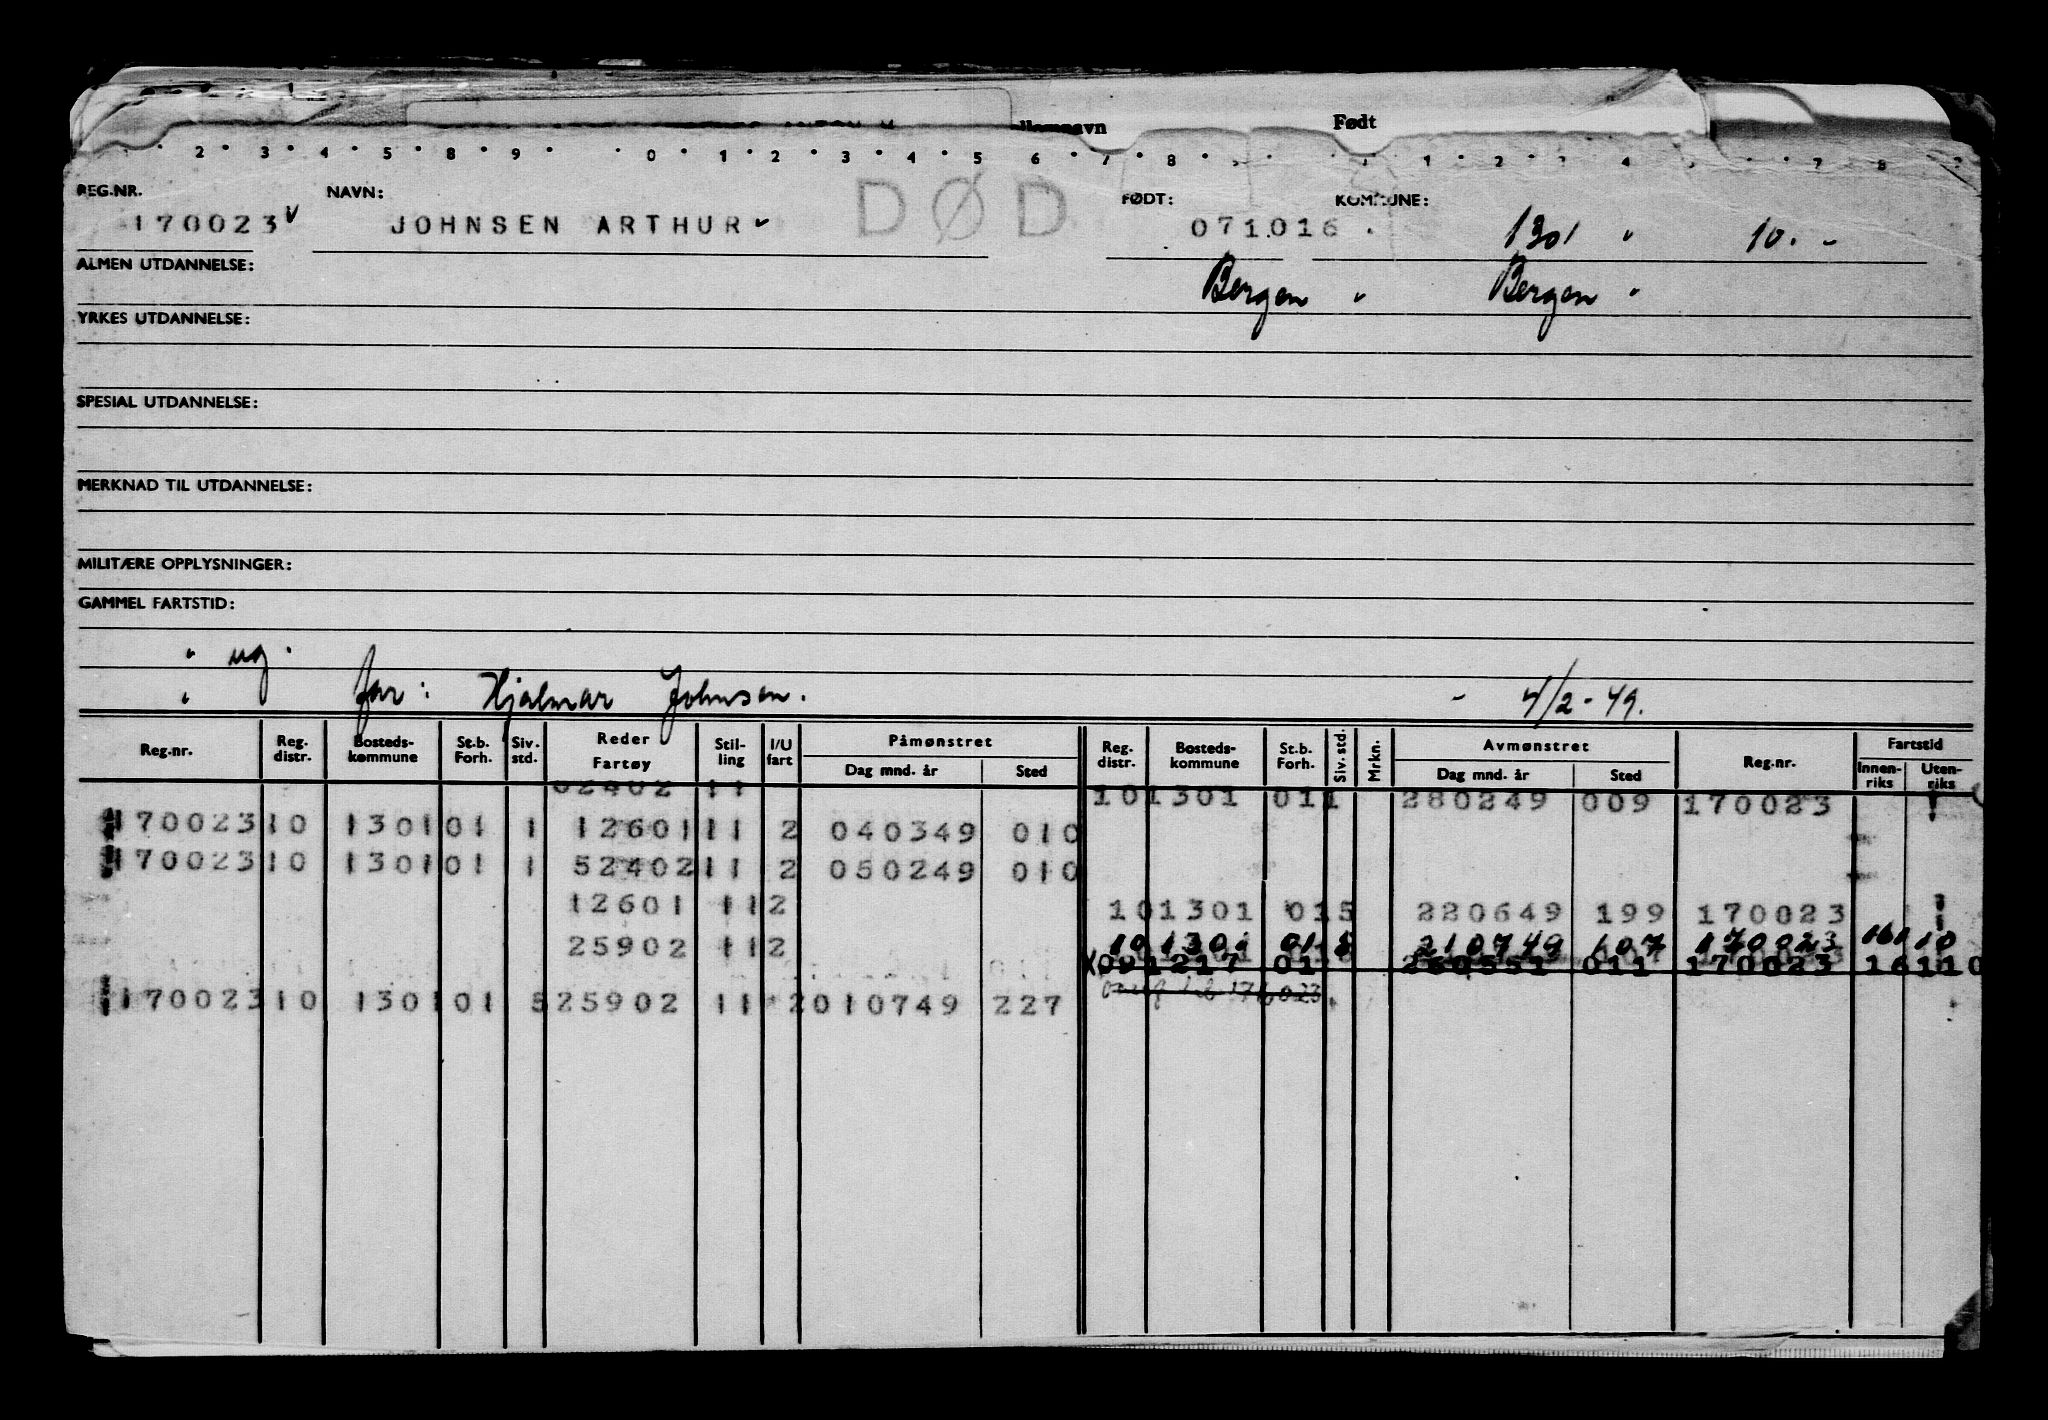 Født
2 3 4 5 8 9 0 1 2 3 4 5 6 7 8 1 2 3 4 7 8
REG.NR. NAVN: DØD FØDT: KOMMUNE:
170023 JOHNSEN ARTHUR 071016 1301 10.
ALMEN UTDANNELSE: Bergen Bergen
YRKES UTDANNELSE:
SPESIAL UTDANNELSE:
MERKNAD TIL UTDANNELSE:
MILITÆRE OPPLYSNINGER:
GAMMEL FARTSTID:
" ug.
" far: Hjalmar Johnsen. - 4/2-49.
Reg.nr. Reg. distr. Bosteds-kommune St.b. Forh. Siv. std. Reder Fartøy Stil-ling I/U fart Påmønstret Dag mnd. år Sted Reg. distr. Bosteds-kommune St.b. Forh. Siv. std. Mrkn. Avmønstret Dag mnd. år Sted Reg.nr. Fartstid Innen-riks Uten-riks
02402 11 10 1301 01 1 280249 009 170023
170023 10 1301 01 1 12601 11 2 040349 010
170023 10 1301 01 1 52402 11 2 050249 010
12601 11 2 10 1301 01 5 220649 199 170023
25902 11 2 10 1301 01 210749 107 170023 161 10
X09 1217 01 260551 011 170023 16110
170023 10 1301 01 5 25902 11 2 010749 227